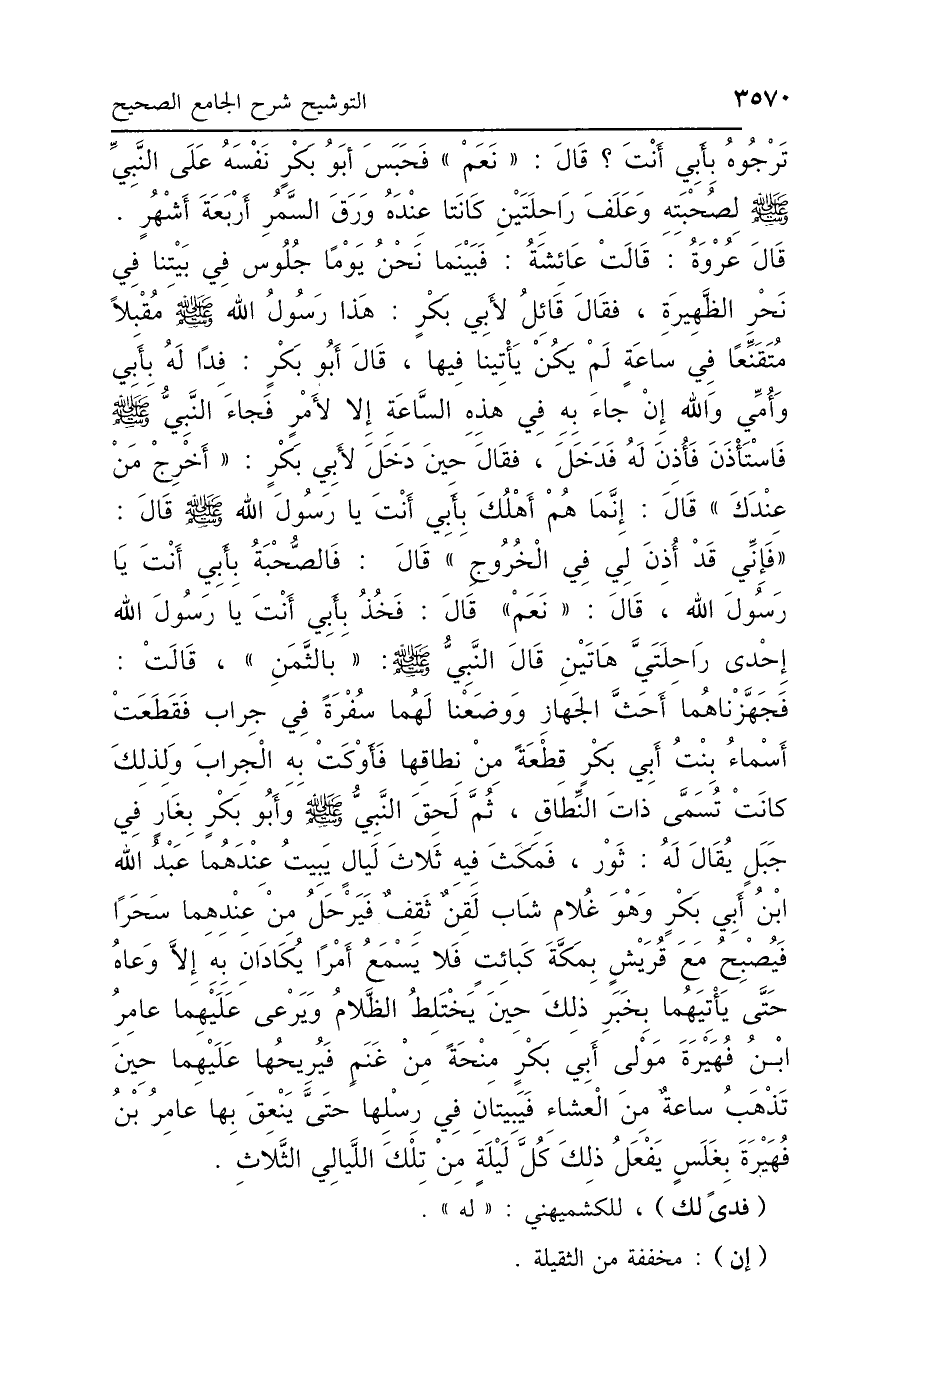 ٣٥٧٠ التوشيح شرح الجامع الصحيح
تَرْجُوهُ بِأَبِي أَنْتَ ؟ قَالَ : « نَعَمْ » فَحَبَسَ أَبَوُ بَكْرٍ نَفْسَهُ عَلَى النَّبِيِّ
ﷺ لِصُحْبَتِهِ وَعَلَفَ رَاحِلَتَيْنِ كَانَتا عِنْدَهُ وَرَقَ السَّمُرِ أَرْبَعَةَ أَشْهُرٍ .
قَالَ عُرْوَةُ : قَالَتْ عَائِشَةُ : فَبَيْنَما نَحْنُ يَوْمًا جُلُوس فِي بَيْتِنا فِي
نَحْرِ الظَّهِيرَةِ ، فقَالَ قَائِلُ لأَبِي بَكْرٍ : هَذا رَسُولُ الله ﷺ مُقْبِلاً
مُتَقَنِّعًا فِي ساعَةٍ لَمْ يَكُنْ يَأْتِينا فِيها ، قَالَ أَبُو بَكْرٍ : فِدًا لَهُ بِأَبِي
وَأُمِّي وَالله إِنْ جاءَ بِهِ فِي هذِهِ السَّاعَةِ إلا لأَمْرٍ فَجاءَ النَّبِيُّ ﷺ
فَاسْتَأْذَنَ فَأُذِنَ لَهُ فَدَخَلَ ، فقَالَ حِينَ دَخَلَ لأَبِي بَكْرٍ : « أَخْرِجْ مَنْ
عِنْدَكَ » قَالَ : إِنَّمَا هُمْ أَهْلُكَ بِأَبِي أَنْتَ يا رَسُولَ الله ﷺ قَالَ :
«فَإِنِّي قَدْ أُذِنَ لِي فِي الْخُرُوجِ » قَالَ : فَالصُّحْبَةُ بِأَبِي أَنْتَ يَا
رَسُولَ الله ، قَالَ : « نَعَمْ» قَالَ : فَخُذُ بِأَبِي أَنْتَ يا رَسُولَ الله
إِحْدى رَاحِلَتَيَّ هَاتَيْنِ قَالَ النَّبِيُّ ﷺ: « بالثَّمَنِ » ، قَالَتْ :
فَجَهَّزْناهُما أَحَثَّ الجَهازِ وَوَضَعْنا لَهُما سُفْرَةً فِي جِراب فَقَطَعَتْ
أَسْماءُ بِنْتُ أَبِي بَكْرٍ قِطْعَةً مِنْ نِطاقِها فَأَوْكَتْ بِهِ الْجِرابَ وَلِذلِكَ
كانَتْ تُسَمَّى ذاتَ النِّطاقِ ، ثُمَّ لَحِقَ النَّبِيُّ ﷺ وأَبُو بَكْرٍ بِغَارٍ فِي
جَبَلٍ يُقَالَ لَهُ : ثَوْر ، فَمَكَثَ فِيهِ ثَلاثَ لَيالٍ يَبِيتُ عِنْدَهُما عَبْدُ الله
ابْنُ أَبِي بَكْرٍ وَهْوَ غُلام شَاب لَقِنٌ ثَقِفٌ فَيَرْحَلُ مِنْ عِنْدِهِما سَحَرًا
فَيُصْبِحُ مَعَ قُرَيْشٍ بِمَكَّةَ كَبائِتٍ فَلا يَسْمَعُ أَمْرًا يُكَادَانِ بِهِ إِلاَّ وَعاهُ
حَتَّى يَأْتِيَهُما بِخَبَرِ ذلِكَ حِينَ يَخْتَلِطُ الظَّلامُ وَيَرْعى عَلَيْهِما عامِرُ
ابْنُ فُهَيْرَةَ مَوْلى أَبِي بَكْرٍ مِنْحَةً مِنْ غَنَمٍ فَيُرِيحُها عَلَيْهِما حِينَ
تَذْهَبُ ساعةٌ مِنَ الْعِشاءِ فَيَبِيتانِ فِي رِسْلِها حَتَىَّ يَنْعِقَ بِها عامِرُ بْنُ
فُهَيْرَةَ بِغَلَسٍ يَفْعَلُ ذلِكَ كُلَّ لَيْلَةٍ مِنْ تِلْكَ اللَّيالِي الثَّلاثِ .
( فدىً لك ) ، للكشميهني : « له » .
( إن ) : مخففة من الثقيلة .